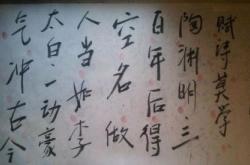 赋诗莫学
陶渊明三
百年后得
空名做
人当如李
太白一动豪
气冲古今